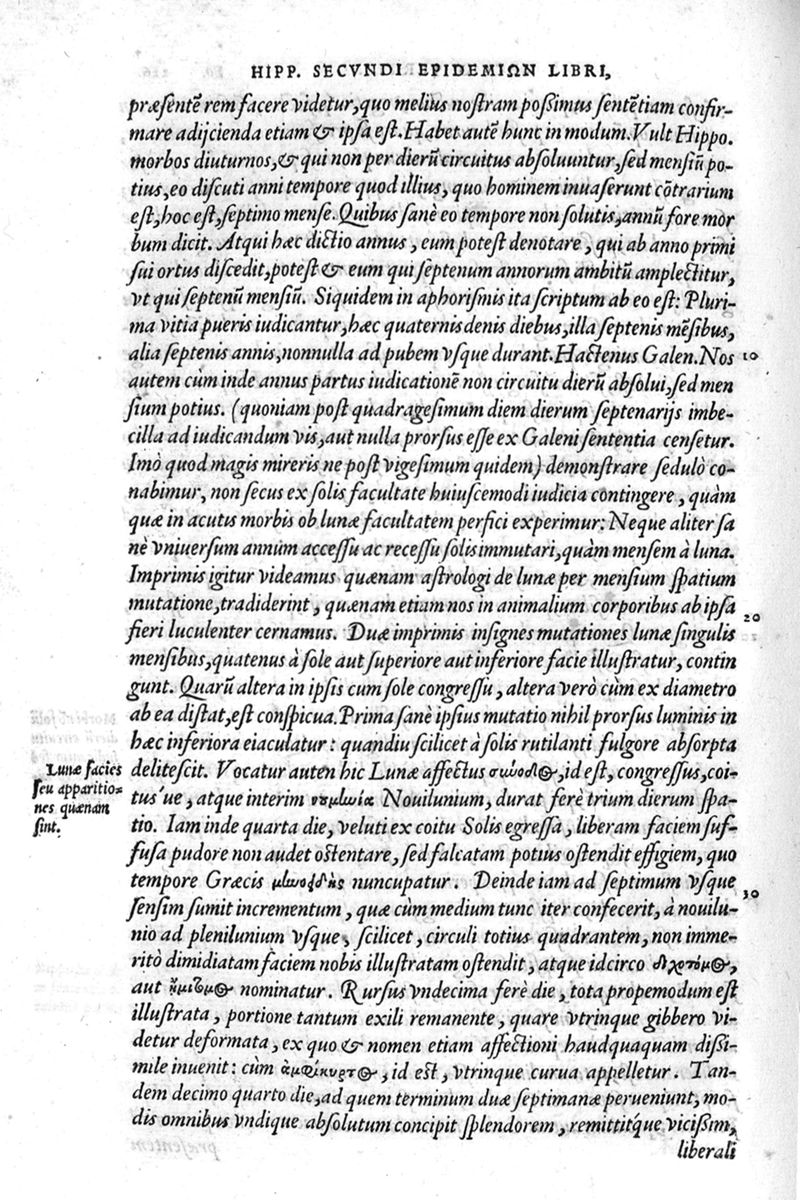 HIPP. SECVNDI EPIDEMIΩN LIBRI,
præſentẽ rem facere videtur, quo melius noſtram poßimus ſentẽtiam confir-
mare adijcienda etiam & ipſa eſt. Habet autẽ hunc in modum. Vult Hippo.
morbos diuturnos, & qui non per dierũ circuitus abſoluuntur, ſed menſiũ po-
tius, eo diſcuti anni tempore quod illius, quo hominem inuaſerunt cõtrarium
eſt, hoc eſt, ſeptimo menſe. Quibus ſanè eo tempore non ſolutis, annũ fore mor
bum dicit. Atqui hæc dictio annus, eum poteſt denotare, qui ab anno primi
ſui ortus diſcedit, poteſt & eum qui ſeptenum annorum ambitũ amplectitur,
vt qui ſeptenũ menſiũ. Siquidem in aphoriſmis ita ſcriptum ab eo eſt: Pluri-
ma vitia pueris iudicantur, hæc quaternis denis diebus, illa ſeptenis mẽſibus,
alia ſeptenis annis, nonnulla ad pubem vſque durant. Hactenus Galen. Nos
10
autem cùm inde annus partus iudicationẽ non circuitu dierũ abſolui, ſed men
ſium potius. (quoniam poſt quadrageſimum diem dierum ſeptenarijs imbe-
cilla ad iudicandum vis, aut nulla prorſus eſſe ex Galeni ſententia cenſetur.
Imò quod magis mireris ne poſt vigeſimum quidem) demonſtrare ſedulò co-
nabimur, non ſecus ex ſolis facultate huiuſcemodi iudicia contingere, quàm
quæ in acutis morbis ob lunæ facultatem perfici experimur: Neque aliter ſa
nè vniuerſum annum acceſſu ac receſſu ſolis immutari, quàm menſem à luna.
Imprimis igitur videamus quænam aſtrologi de lunæ per menſium ſpatium
mutatione, tradiderint, quænam etiam nos in animalium corporibus ab ipſa
20
fieri luculenter cernamus. Duæ imprimis inſignes mutationes lunæ ſingulis
menſibus, quatenus à ſole aut ſuperiore aut inferiore facie illuſtratur, contin
gunt. Quarũ altera in ipſis cum ſole congreſſu, altera verò cùm ex diametro
ab ea diſtat, eſt conſpicua. Prima ſanè ipſius mutatio nihil prorſus luminis in
hæc inferiora eiaculatur: quandiu ſcilicet à ſolis rutilanti fulgore abſorpta
deliteſcit. Vocatur auten hic Lunæ affectus σύνοδος, id eſt, congreſſus, coi-
tus'ue, atque interim νουμηνία Nouilunium, durat ferè trium dierum ſpa-
tio. Iam inde quarta die, veluti ex coitu Solis egreſſa, liberam faciem ſuf-
fuſa pudore non audet oſtentare, ſed falcatam potius oſtendit effigiem, quo
tempore Græcis μηνοειδὴς nuncupatur. Deinde iam ad ſeptimum vſque
30
ſenſim ſumit incrementum, quæ cùm medium tunc iter confecerit, à nouilu-
nio ad plenilunium vſque, ſcilicet, circuli totius quadrantem, non imme-
ritò dimidiatam faciem nobis illuſtratam oſtendit, atque idcirco διχότομος,
aut ἡμίτομος nominatur. Rurſus vndecima ferè die, tota propemodum eſt
illuſtrata, portione tantum exili remanente, quare vtrinque gibbero vi-
detur deformata, ex quo & nomen etiam affectioni haudquaquam dißi-
mile inuenit: cùm ἀμφίκυρτος, id eſt, vtrinque curua appelletur. Tan-
dem decimo quarto die, ad quem terminum duæ ſeptimanæ perueniunt, mo-
dis omnibus vndique abſolutum concipit ſplendorem, remittitq́ue vicißim,
liberali
Lunæ facies
ſeu apparitio-
nes quænam
ſint.